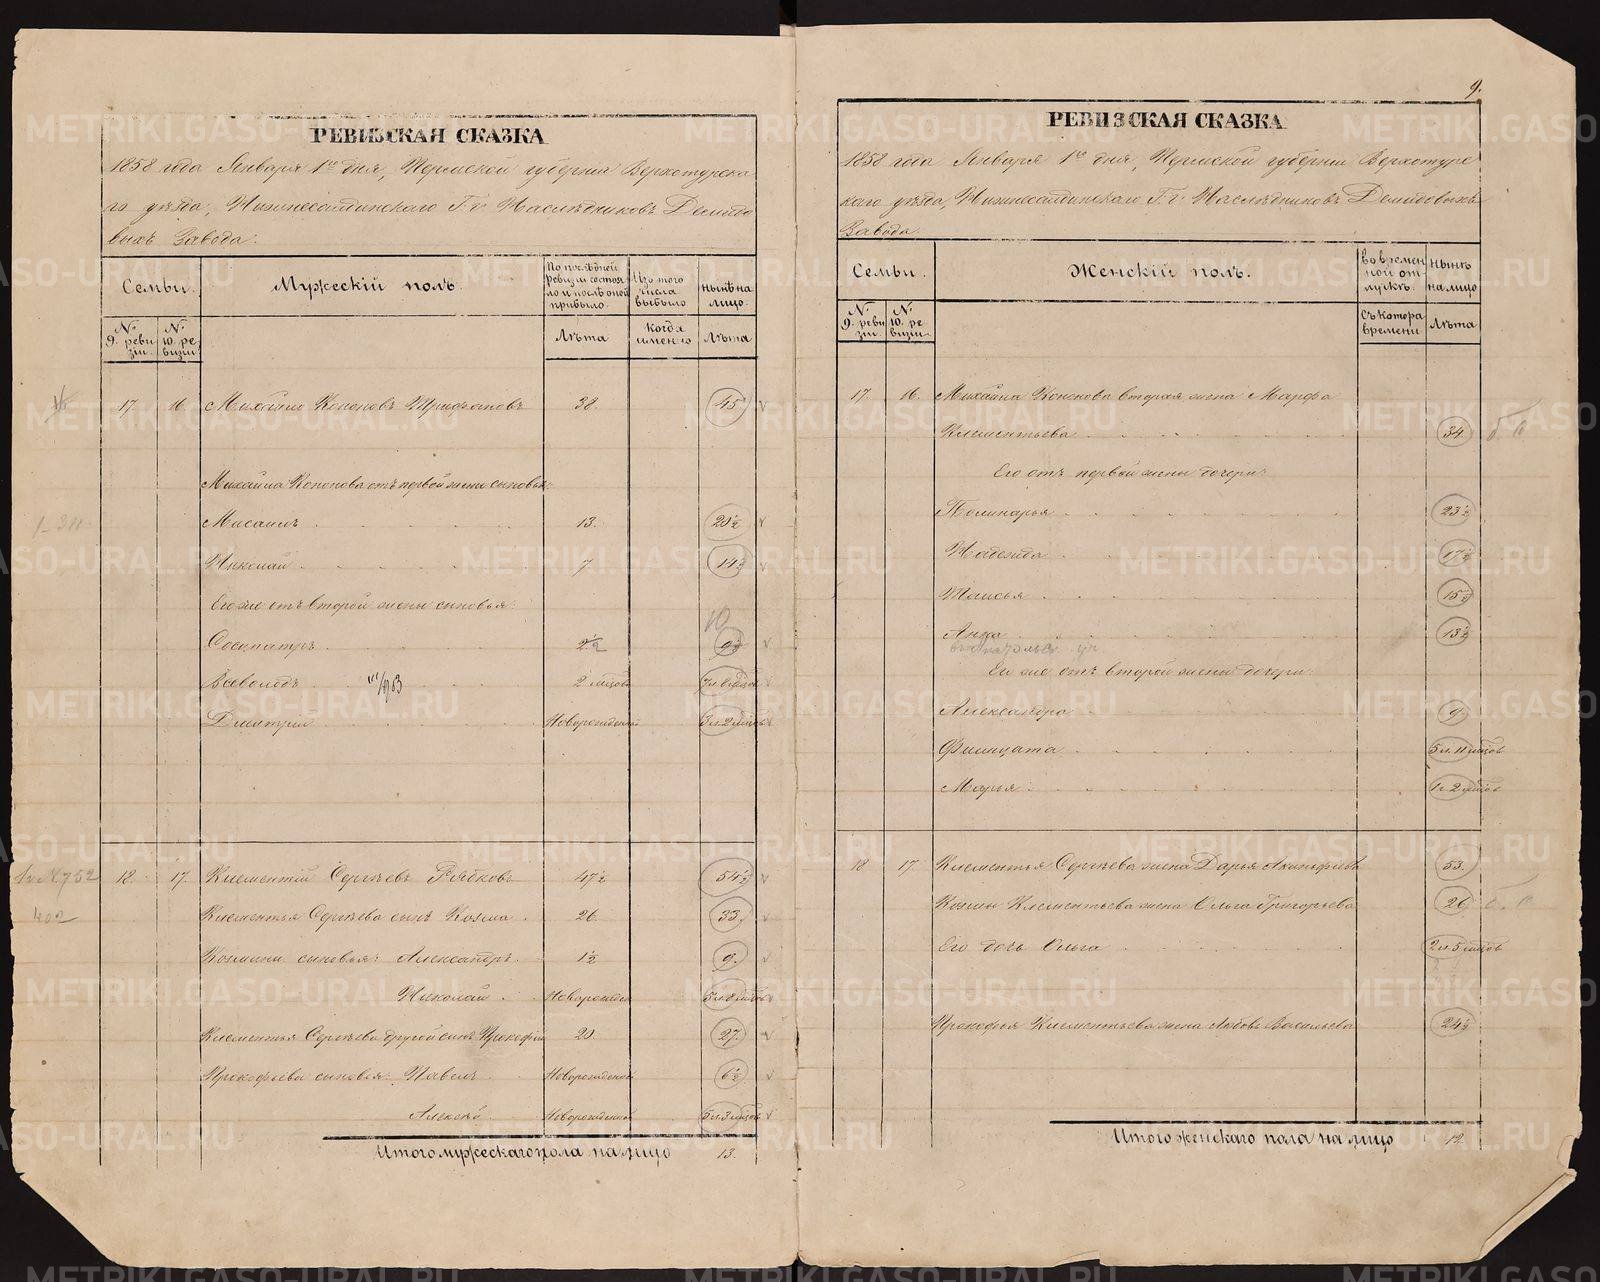 РЕВИЗСКАЯ СКАЗКА
1858 года Января 1го дня, Пермской губернии Верхотурска
го уѣзда, Нижнесалдинскаго Г.г. Наслѣдниковъ Демидо
выхъ Завода.
Семьи.
Мужескій полъ.
По послѣдней ревизіи состояло и послѣ оной прибыло.
Изъ того числа выбыло
Нынѣ на лицо.
№ 9. ревизіи.
№ 10. ревизіи.
Лѣта
Когда именно
Лѣта
16 17. 16. Михайло Кононовъ Трифоновъ 38. 45
Михайла Кононова отъ первой жены сыновья:
Мисаилъ 13. 20½
Николай 7 14½
Его же отъ второй жены сыновья:
10
Сосипатръ 2½ 9½
Всеволодъ 2 мѣсцовъ 7 л 8 мѣсцовъ
Дмитрій Новорожденной 3 л. 2 мѣсцовъ
№ 752 18. 17. Клементій Сергѣевъ Рябковъ 47½ 54½
402 Клементья Сергѣева сынъ Козма 26 33.
Козмины сыновья: Александръ 1½ 9.
Николай Новорожден 5 л 8 мѣсцовъ
Клементья Сергѣева другой сынъ Прокофій 20. 27.
Прокофьева сыновья: Павелъ Новорожденной 6½
Алексѣй Новорожденной 5 л. 3 мѣсцовъ
Итого мужескаго пола на лицо 13.
9.
РЕВИЗСКАЯ СКАЗКА
1858 года Января 1го дня, Пермской губерніи Верхотурс
каго уѣзда, Нижнесалдинскаго Г.г. Наслѣдниковъ Демидовыхъ
Завода.
Семьи.
Женскій полъ.
Во временной отлучкѣ.
Нынѣ на лицо
№ 9. ревизіи.
№ 10. ревизіи.
Съ котора времени
Лѣта
17. 16. Михайла Кононова вторая жена Марфа
Клементьева 34
Его отъ первой жены дочери:
Полинарья 23½
Надежда 17½
Таисья 15½
Анна 13½
Его же отъ второй жены дочери:
Александра 9
Филицата 5 л. 11 мѣсцовъ
Марья 1 г. 2 мѣсцовъ
18 17. Клементья Сергѣева жена Дарья Акинфіева 53.
Козмы Клементьева жена Ольга Григорьева 26
Его дочь Ольга 2 л. 5 мѣсцовъ
Прокофья Клементьева жена Любовь Васильева 24½
Итого женскаго пола на лицо 12.
METRIKI.GASO-URAL.RU